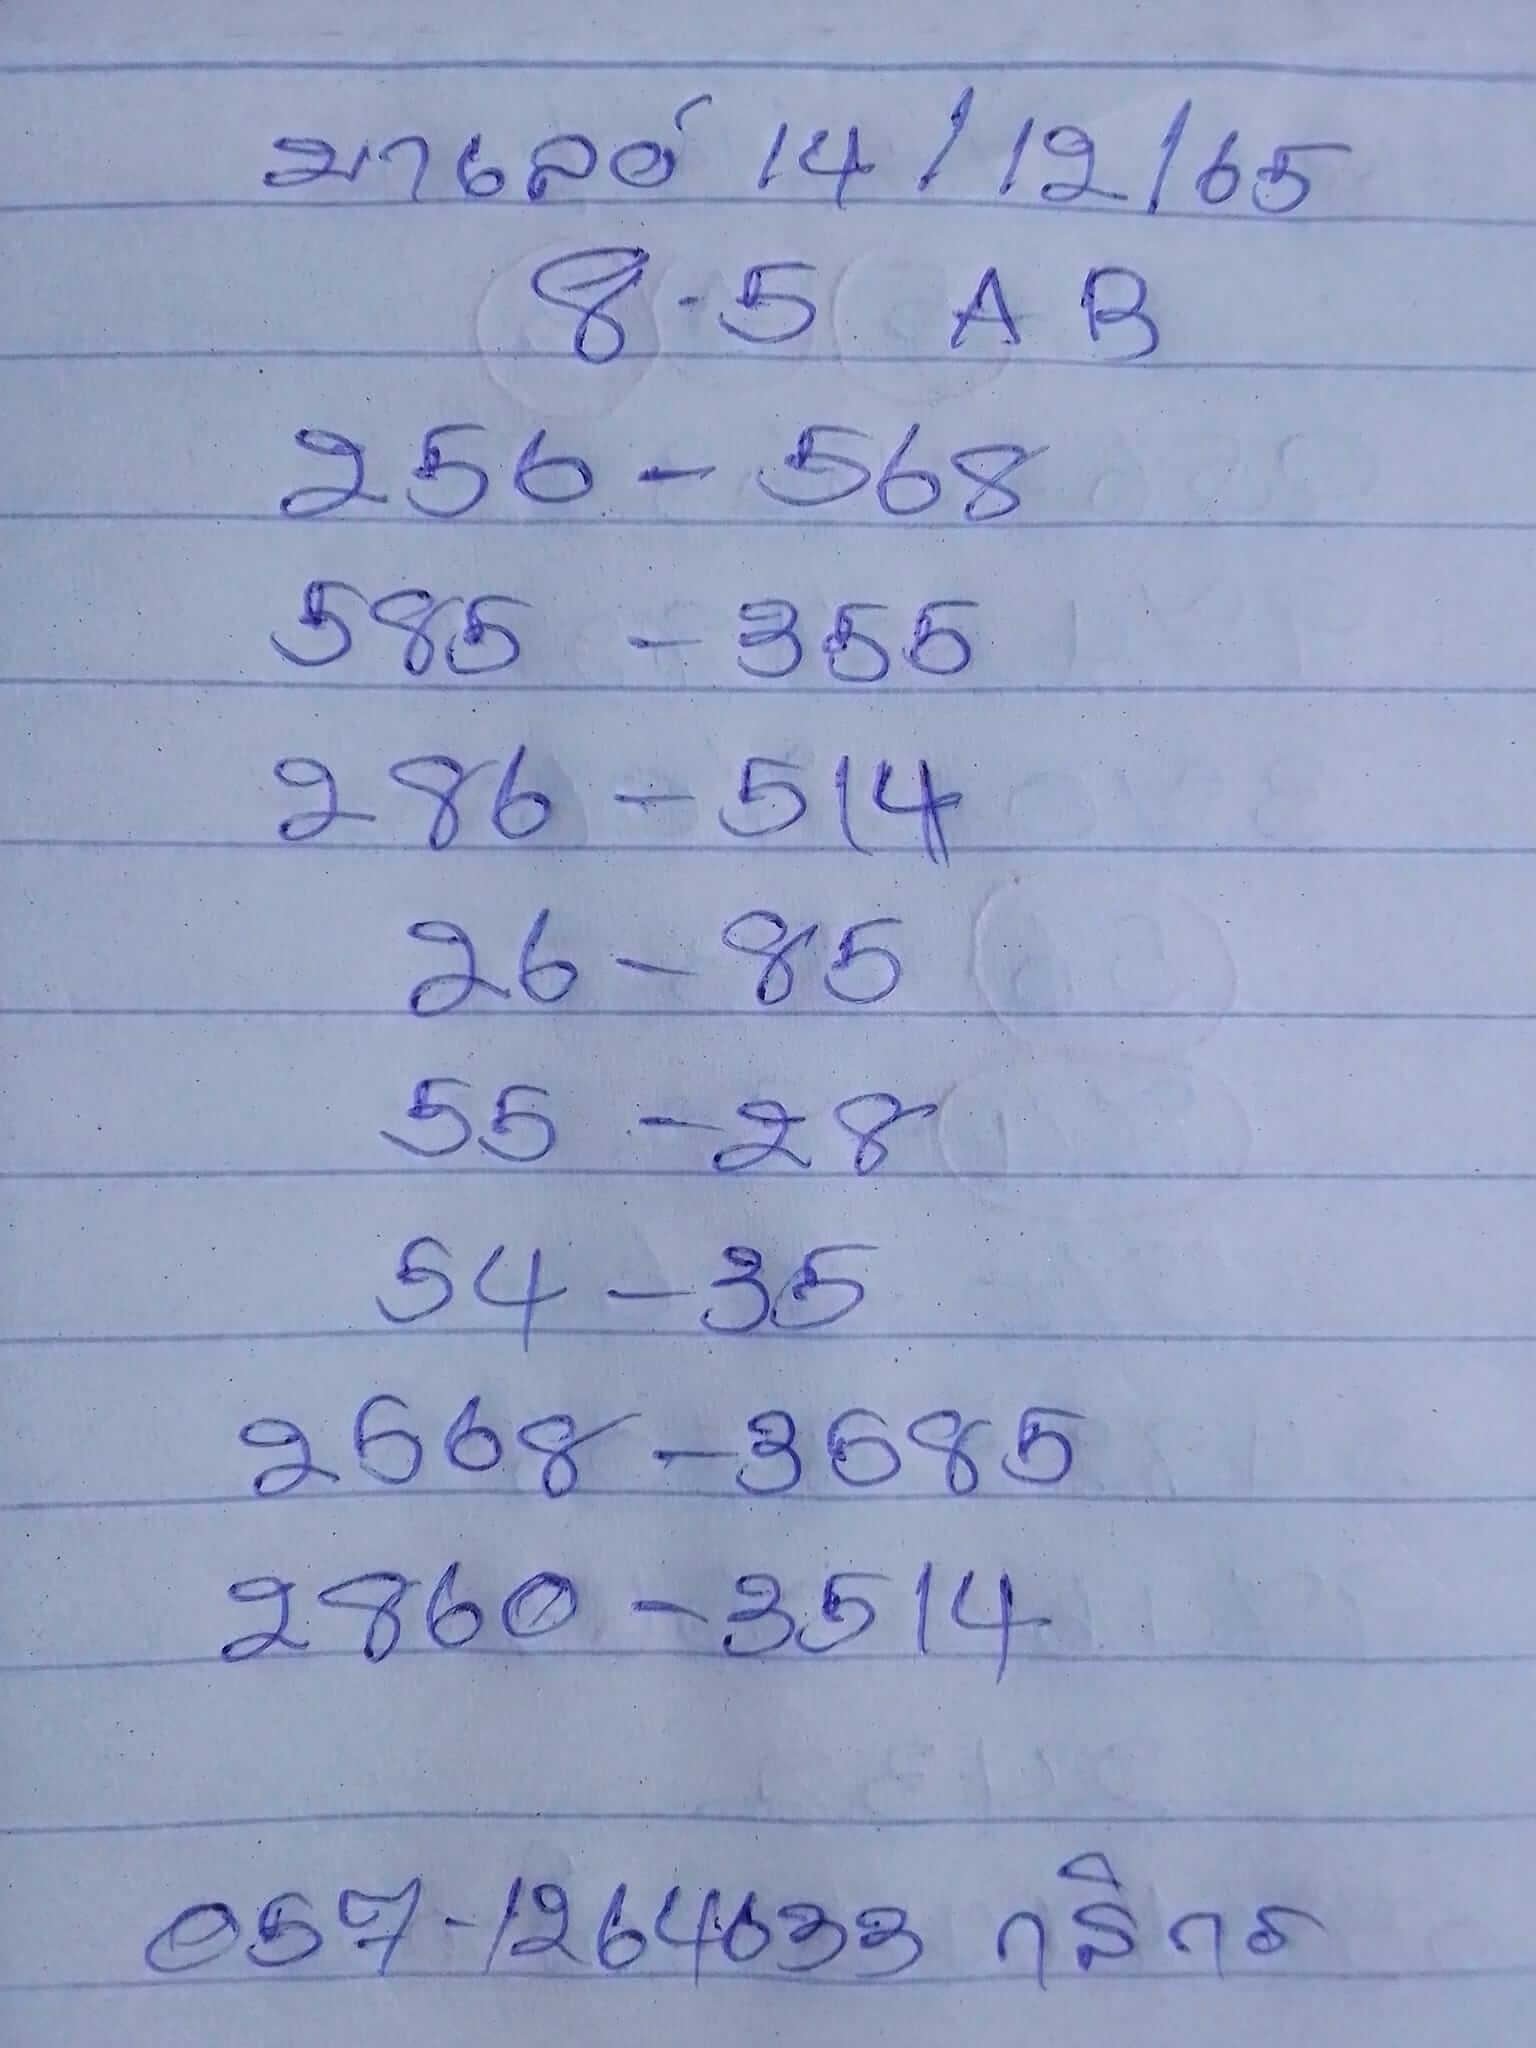 มาเลย์ 14/12/65
8-5 A B
256 - 568
585 - 355
286 - 514
26 - 85
55 - 28
54 - 35
2568 - 3585
2860 - 3514
057-1264633 กสิกร